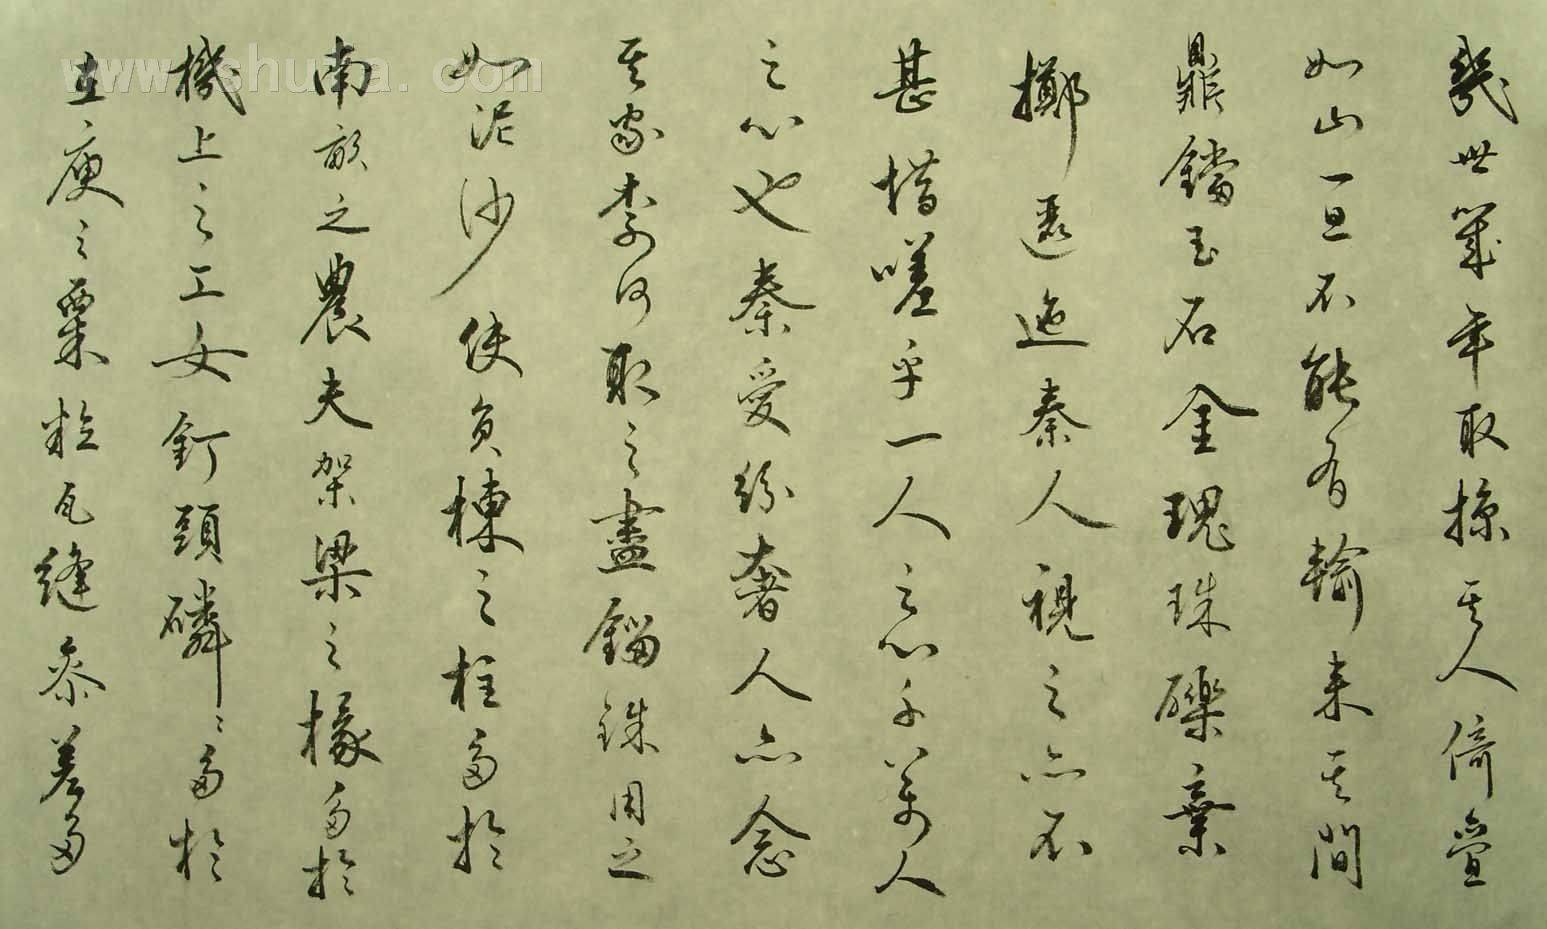 幾世幾年取掠其人倚疊
如山一旦不能有輸来其間
鼎鐺玉石金瑰珠礫棄
擲邐迤秦人視之亦不
甚惜嗟乎一人之心千萬人
之心也秦愛紛奢人亦念
其家奈何取之盡錙銖用之
如泥沙使負棟之柱多於
南畝之農夫架梁之椽多於
機上之工女釘頭磷磷多於
在庾之粟粒瓦縫參差多